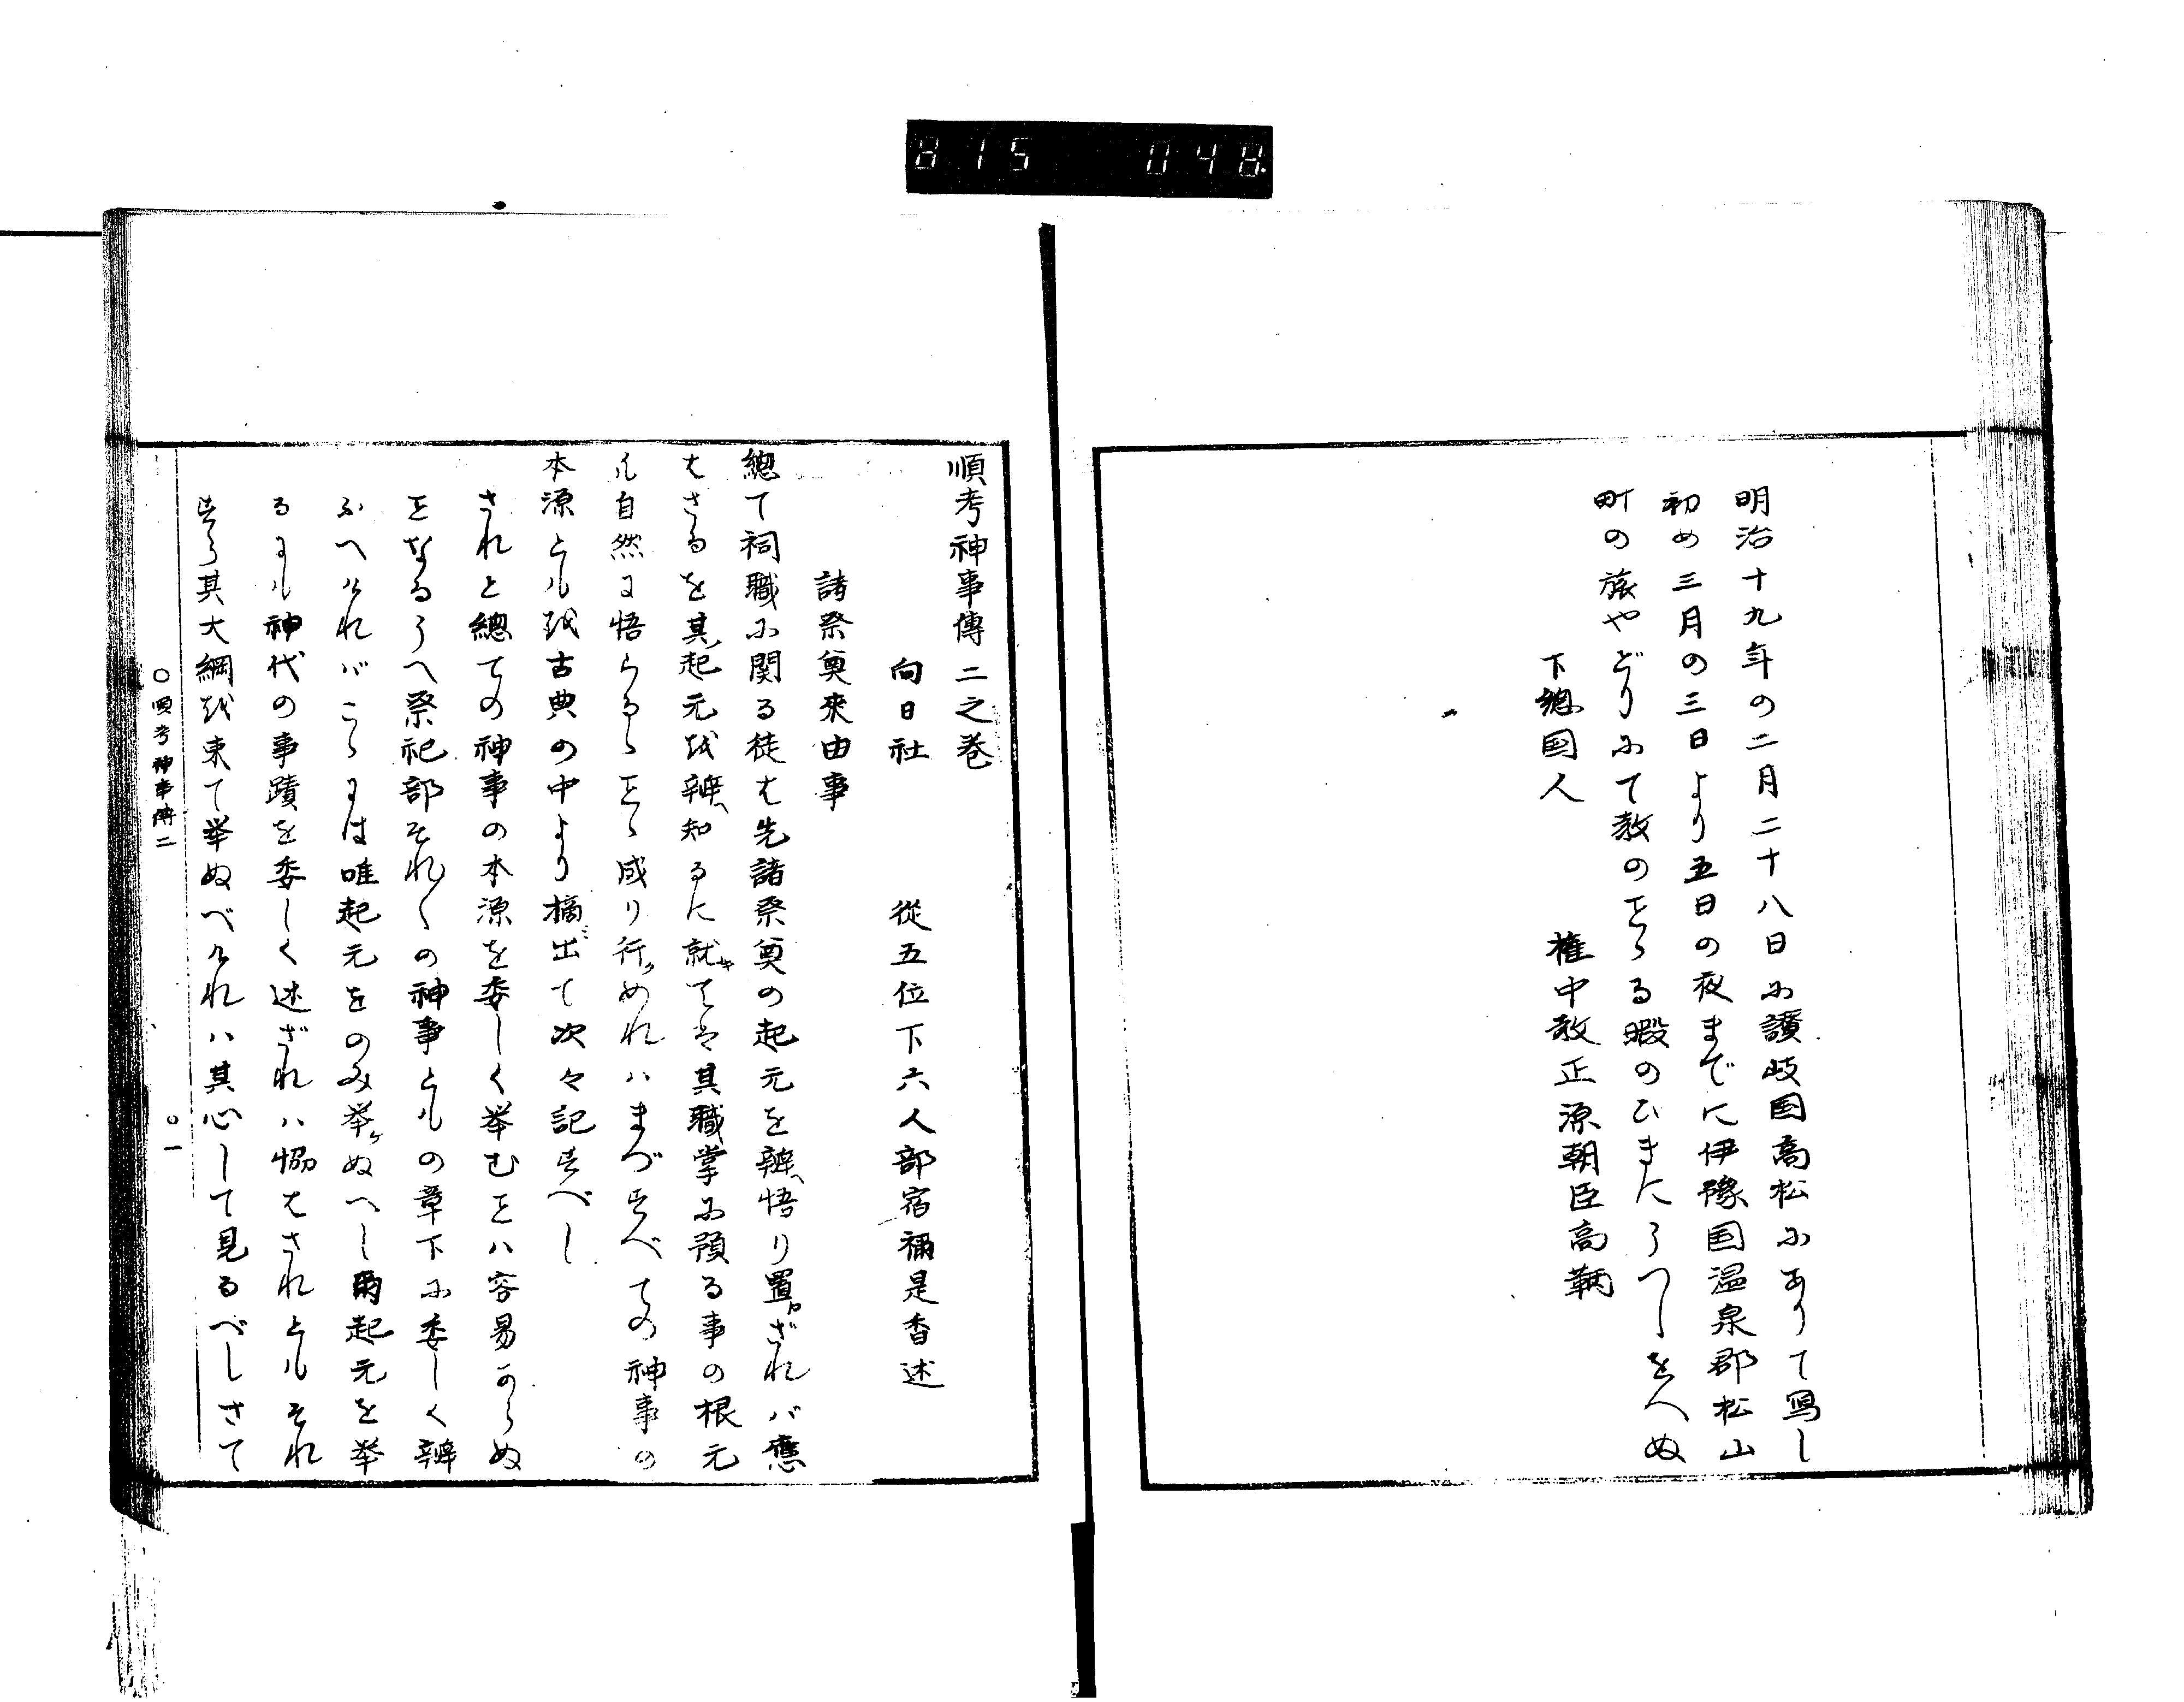 815 048
明治十九年の二月二十八日に讃岐国高松にありて寫し
初め三月の三日より五日の夜までに伊豫国温泉郡松山
町の旅やどりにて教のことゝる暇のひまにうつしをへぬ
下總国人 権中教正源朝臣高鞆
順考神事傳二之巻
向日社 從五位下六人部宿禰是香述
諸祭奠來由事
總て祠職に関る徒は先諸祭奠の起元を辨へ悟り置ざれバ應
はさるを其起元を辨へ知るに就きては其職掌に預る事の根元
も自然に悟らるゝことゝ成り行めれハまづすべての神事の
本源ともを古典の中より摘出て次々記すべし
されと總ての神事の本源を委しく挙むことハ容易からぬ
ことなるうへ祭祀部それ〳〵の神事ともの章下に委しく辨
ふへけれバこゝには唯起元をのみ挙ぬへし爾起元を挙
るにも神代の事蹟を委しく述ざれハ協はされともそれ
すら其大綱を束て挙ぬべけれハ其心して見るべしさて
○順考神事傳二 ○一